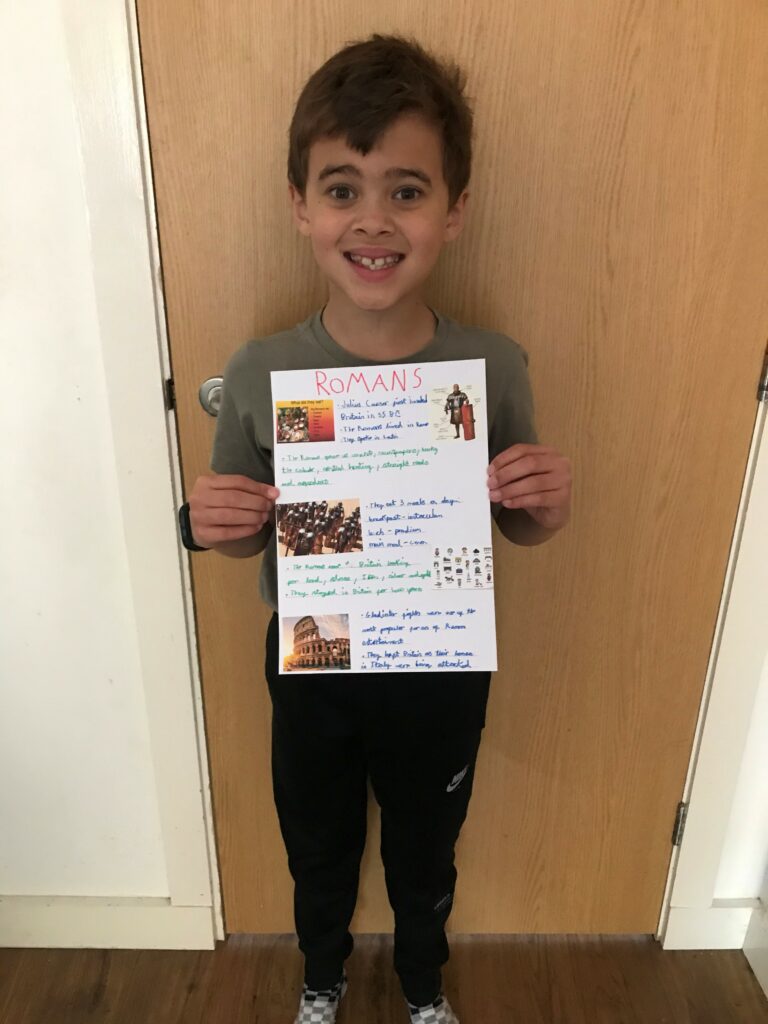 ROMANS
What did they eat?
• Julius Caesar first invaded
Britain in 55 BC
• The Romans lived in Rome
• They spoke in Latin
• The Romans gave us concrete, newspapers,
the calendar, central heating, straight roads
and aqueducts
• They eat 3 meals a day:
breakfast -
lunch -
main meal -
• The Romans went to Britain looking
for land, slaves, silver and gold
• They stayed in Britain for years
• Gladiator fights were one of the
most popular forms of Roman
entertainment
• They left Britain as their homes
in Italy were being attacked